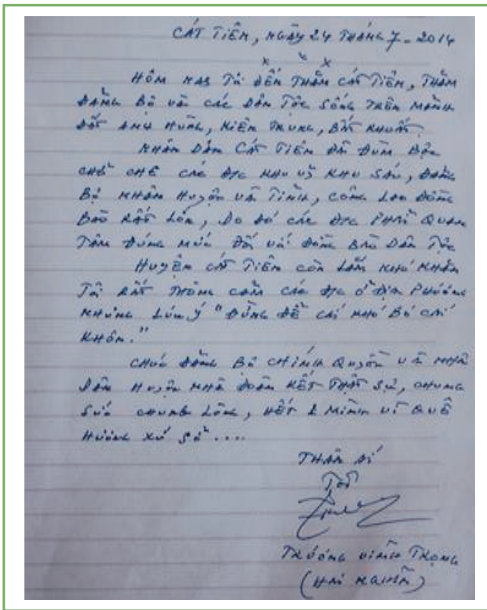 CÁT TIÊN, NGÀY 24 THÁNG 7 - 2014
x x x
HÔM NAY TÔI ĐẾN THĂM CÁT TIÊN, THĂM
ĐẢNG BỘ VÀ CÁC DÂN TỘC SỐNG TRÊN MẢNH
ĐẤT ANH HÙNG, KIÊN TRUNG, BẤT KHUẤT.
NHÂN DÂN CÁT TIÊN ĐÃ ĐÙM BỌC
CHE CHỞ CÁC Đ/C KHU VÀ KHU SÁU, ĐẢNG
BỘ NHÂN HUYỆN VÀ TỈNH, CÔNG LAO ĐỒNG
BÀO RẤT LỚN, DO ĐÓ CÁC Đ/C PHẢI QUAN
TÂM ĐÚNG MỨC ĐỐI VỚI ĐỒNG BÀO DÂN TỘC
HUYỆN CÁT TIÊN CÒN LẮM KHÓ KHĂN
TÔI RẤT THÔNG CẢM CÁC Đ/C Ở ĐỊA PHƯƠNG
NHƯNG LƯU Ý "ĐỪNG ĐỂ CÁI KHÓ BÓ CÁI
KHÔN."
CHÚC ĐẢNG BỘ CHÍNH QUYỀN VÀ NHÂN
DÂN HUYỆN NHÀ ĐOÀN KẾT THẬT SỰ, CHUNG
SỨC CHUNG LÒNG, HẾT MÌNH VÌ QUÊ
HƯƠNG XỨ SỞ....
THÂN ÁI
TÔI
TRƯƠNG VĨNH TRỌNG
(HAI NGHĨA)